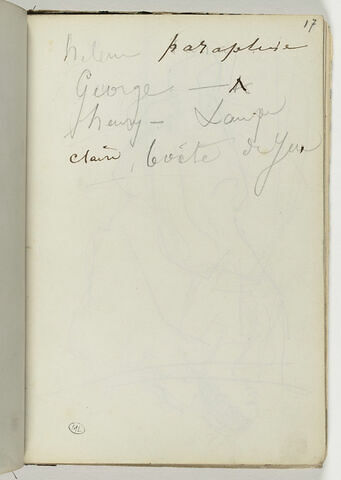 17
helene parapluie
George —
henry — Lampe
claire, boéte de Jeu